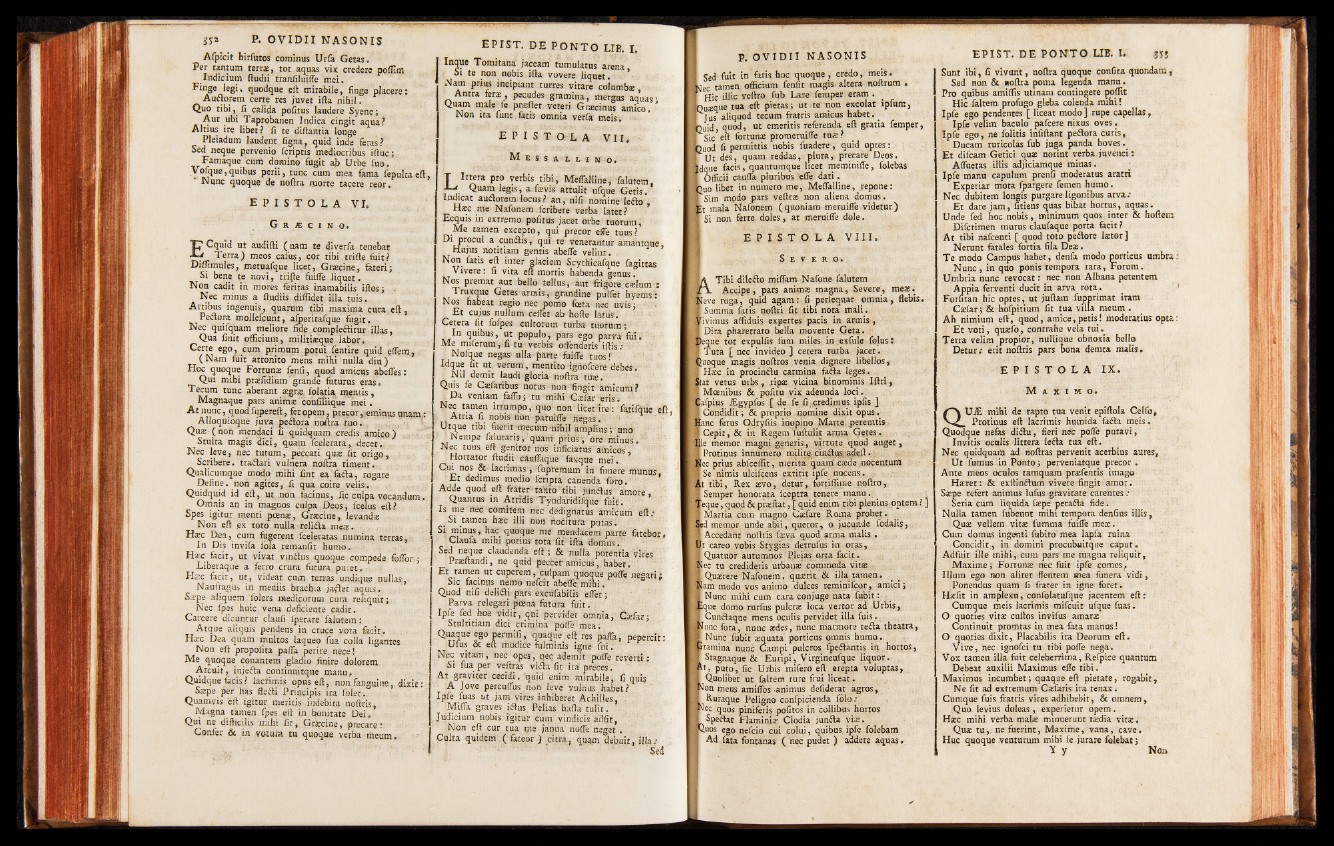 352 P. OVIDII NASONIS
Aſpicit hirſutos cominus Urſa Getas.
Per tantum terræ, tot aquas vix credere poſſim
Indicium ſtudii tranſiluiſſe mei.
Finge legi, quodque eſt mirabile, finge placere:
Auctorem certe res juvet iſta nihil.
Quo tibi, ſi calida poſitus laudere Syene;
Aut ubi Taprobanen Indica cingit aqua?
Altius ire libet? ſi te diſtantia longe
Pleiadum laudent ſigna, quid inde feras?
Sed neque pervenio ſcriptis mediocribus iſtuc;
Famaque cum domino fugit ab Urbe ſuo.
Voſque, quibus perii, tunc cum mea fama ſepulta eſt,
Nunc quoque de noſtra morte tacere reor.
EPISTOLA VI.
GRÆCINO.
ECquid ut audiſti (nam te diverſa tenebat
Terra) meos caſus, cor tibi triſte fuit?
Diſſimules, metuaſque licet, Græcine, fateri;
Si bene te novi, triſte fuiſſe liquet.
Non cadit in mores feritas inamabilis iſtos;
Nec minus a ſtudiis diſſidet illa tuis.
Artibus ingenuis, quarum tibi maxima cura eſt,
Pectora molleſcunt, aſperitaſque fugit.
Nec quiſquam meliore fide complectitur illas,
Qua ſinit officium, militiæque labor.
Certe ego, cum primum potui ſentire quid eſſem,
(Nam fuit attonito mens mihi nulla diu)
Hoc quoque Fortunæ ſenſi, quod amicus abeſſes:
Qui mihi præſidium grande futurus eras.
Tecum tunc aberant ægræ ſolatia mentis,
Magnaque pars animæ conſiliique mei.
At nunc, quod ſupereſt, fer opem, precor, eminus unam:
Alloquioque juva pectora noſtra tuo.
Quæ (non mendaci ſi quidquam credis amico)
Stulta magis dici, quam ſcelerata, decet.
Nec leve, nec tutum, peccati quæ ſit origo,
Scribere. tractari vulnera noſtra timent.
Qualicumque modo mihi ſint ea facta, rogare
Define. non agites, ſi qua coire velis.
Quidquid id eſt, ut non facinus, ſic culpa vocandum.
Omnis an in magnos culpa Deos, ſcelus eſt?
Spes igitur menti pœnæ, Græcine, levandæ
Non eſt ex toto nulla relicta meæ.
Hæc Dea, cum fugerent ſceleratas numina terras,
In Dis inviſa ſola remanſit humo.
Hæc facit, ut vivat vinctus quoque compede foſſor;
Liberaque a ferro crura futura putet.
Hæc facit, ut, videat cum terras undique nullas,
Naufragus in mediis brachia jactet aquis.
Sæpe aliquem ſolers medicorum cura reliquit;
Nec ſpes huic vena deficiente cadit.
Carcere dicuntur clauſi ſperare ſalutem:
Atque aliquis pendens in cruce vota facit.
Hæc Dea quam multos laqueo ſua colla ligantes
Non eſt propoſita paſſa perire nece!
Me quoque conantem gladio finire dolorem
Arcuit, injecta continuitque manu.
Quidque facis? lacrimis opus eſt, non ſanguine, dixit:
Sæpe per has flecti Principis ira ſolet.
Quamvis eſt igitur meritis indebita noſtris,
Magna tamen ſpes eſt in bonitate Dei.
Qui ne difficilis mihi ſit, Græcine, precare:
Confer & in votum tu quoque verba meum.
EPIST. DE PONTO LIB. I.
Inque Tomitana jaceam tumulatus arena,
Si te non nobis iſta vovere liquet.
Nam prius incipiant turres vitare columbæ,
Antra feræ, pecudes gramina, mergus aquas;
Quam male ſe præſtet veteri Græcinus amico,
Non ita ſunt fatis omnia verſa meis.
EPISTOLA VII.
MESSALLINO.
LIttera pro verbis tibi, Meſſalline, ſalutem,
Quam legis, a ſævis attulit uſque Getis.
Indicat auctorem locus? an, niſi nomine lecto,
Hæc me Naſonem ſcribere verba latet?
Ecquis in extremo poſitus jacet orbe tuorum,
Me tamen excepto, qui precor eſſe tuus?
Di procul a cunctis, qui te venerantur amantque,
Hujus notitiam gentis abeſſe velint.
Non ſatis eſt inter glaciem Scythicaſque ſagittas
Vivere: ſi vita eſt mortis habenda genus.
Nos premat aut bello tellus, aut frigore cælum:
Truxque Getes armis, grandine pulſet hyems:
Nos habeat regio nec pomo fœta nec uvis;
Et cujus nullum ceſſet ab hoſte latus.
Cetera ſit ſoſpes cultorum turba tuorum;
In quibus, ut populo, pars ego parva fui.
Me miſerum, ſi tu verbis offenderis iſtis:
Noſque negas ulla parte fuiſſe tuos!
Idque ſit ut verum, mentito ignoſcere debes.
Nil demit laudi gloria noſtra tuæ.
Quis ſe Cæſaribus notus non fingit amicum?
Da veniam faſſo; tu mihi Cæſar eris.
Nec tamen irrumpo, quo non licet ire: ſatiſque eſt,
Atria ſi nobis non patuiſſe negas.
Utque tibi fuerit mecum nihil amplius; uno
Nempe ſalutaris, quam prius, ore minus.
Nec tuus eſt genitor nos inficiatus amicos,
Hortator ſtudii cauſſaque faxque mei.
Cui nos & lacrimas, ſupremum in funere munus,
Et dedimus medio ſcripta canenda foro.
Adde quod eſt frater tanto tibi junctus amore,
Quantus in Atridis Tyndaridiſque fuit.
Is me nec comitem nec dedignatus amicum eſt:
Si tamen hæc illi non nocitura putas.
Si minus, hac quoque me mendacem parte fatebor.
Clauſa mihi potius tota ſit iſta domus.
Sed neque claudenda eſt; & nulla potentia vires
Præſtandi, ne quid peccet amicus, habet.
Et tamen ut cuperem, culpam quoque poſſe negari;
Sic facinus nemo neſcit abeſſe mihi.
Quod niſi delicti pars excuſabilis eſſet;
Parva relegari pœna futura fuit.
Ipſe ſed hoc vidit, qui pervidet omnia, Cæſar;
Stultitiam dici crimina poſſe mea.
Quaque ego permiſi, quaque eſt res paſſa, pepercit:
Uſus & eſt modice fulminis igne ſui.
Nec vitam, nec opes, nec ademit poſſe reverti:
Si ſua per veſtras victa ſit ira preces.
At graviter cecidi. quid enim mirabile, ſi quis
A Jove percuſſus non leve vulnus habet?
Ipſe ſuas ut jam vires inhiberet Achilles,
Miſſa graves ictus Pelias haſta tulit.
Judicium nobis igitur cum vindicis adſit,
Non eſt cur tua me janua noſſe neget.
Culta quidem (fateor) citra, quam debuit, illa:
Sed
P. OVIDII NASONIS
Sed fuit in fatis hoc quoque, credo, meis.
Nec tamen officium ſenſit magis altera noſtrum.
Hic illic veſtro ſub Lare ſemper eram.
Quæque tua eſt pietas; ut te non excolat ipſum,
Jus aliquod tecum fratris amicus habet.
Quid, quod, ut emeritis referenda eſt gratia ſemper,
Sic eſt fortunæ promeruiſſe tuæ?
Quod ſi permittis nobis ſuadere, quid optes:
Ut des, quam reddas, plura, precare Deos.
Idque facis, quantumque licet meminiſſe, ſolebas
Officii cauſſa pluribus eſſe dati.
Quo libet in numero me, Meſſalline, repone:
Sim modo pars veſtræ non aliena domus.
Et mala Naſonem (quoniam meruiſſe videtur)
Si non ferre doles, at meruiſſe dole.
EPISTOLA VIII.
SEVERO.
A Tibi dilecto miſſam Naſone ſalutem
Accipe, pars animæ magna, Severe, meæ.
Neve roga, quid agam: ſi perſequar omnia, flebis.
Summa ſatis noſtri ſit tibi nota mali.
Vivimus aſſiduis expertes pacis in armis,
Dira pharetrato bella movente Geta.
Deque tot expulſis ſum miles in exſule ſolus:
Tuta [nec invideo] cetera turba jacet.
Quoque magis noſtros venia dignere libellos,
Hæc in procinctu carmina facta leges.
Stat vetus urbs, ripæ vicina binominis Iſtri,
Mœnibus & poſitu vix adeunda loci.
Caſpius Ægypſos [de ſe ſi credimus ipſis]
Condidit; & proprio nomine dixit opus.
Hanc ferus Odryſiis inopino Marte peremtis
Cepit, & in Regem ſuſtulit arma Getes.
Ille memor magni generis, virtute quod auget,
Protinus innumero milite cinctus adeſt.
Nec prius abſceſſit, merita quam cæde nocentum
Se nimis ulciſcens extitit ipſe nocens.
At tibi, Rex ævo, detur, fortiſſime noſtro,
Semper honorata ſceptra tenere manu.
Teque, quod & præſtat, [quid enim tibi plenius optem?]
Martia cum magno Cæſare Roma probet.
Sed memor unde abii, queror, o jucunde ſodalis,
Accedant noſtris ſæva quod arma malis.
Ut careo vobis Stygias detruſus in oras,
Quatuor autumnos Pleias orta facit.
Nec tu credideris urbanæ commoda vitæ
Quærere Naſonem. quærit & illa tamen.
Nam modo vos animo dulces reminiſcor, amici;
Nunc mihi cum cara conjuge nata ſubit:
Eque domo rurſus pulcræ loca vertor ad Urbis,
Cunctaque mens oculis pervidet illa ſuis.
Nunc fora, nunc ædes, nunc marmore tecta theatra,
Nunc ſubit æquata porticus omnis humo.
Gramina nunc Campi pulcros ſpectantis in hortos,
Stagnaque & Euripi, Virgineuſque liquor.
At, puto, ſic Urbis miſero eſt erepta voluptas,
Quolibet ut ſaltem rure frui liceat.
Non meus amiſſos animus deſiderat agros,
Ruraque Peligno conſpicienda ſolo:
Nec quos piniferis poſitos in collibus hortos
Spectat Flaminiæ Clodia juncta viæ.
Quos ego neſcio cui colui, quibus ipſe ſolebam
Ad ſata fontanas (nec pudet) addere aquas.
EPIST. DE PONTO LIB. I. 353
Sunt ibi, ſi vivunt, noſtra quoque conſita quondam,
Sed non & noſtra poma legenda manu.
Pro quibus amiſſis utinam contingere poſſit
Hic ſaltem profugo gleba colenda mihi!
Ipſe ego pendentes [liceat modo] rupe capellas,
Ipſe velim baculo paſcere nixus oves.
Ipſe ego, ne ſolitis inſiſtant pectora curis,
Ducam ruricolas ſub juga panda boves.
Et diſcam Getici quæ norint verba juvenci:
Aſſuetas illis adjiciamque minas.
Ipſe manu capulum prenſi moderatus aratri
Experiar mota ſpargere ſemen humo.
Nec dubitem longis purgare ligonibus arva:
Et dare jam, ſitiens quas bibat hortus, aquas.
Unde ſed hoc nobis, minimum quos inter & hoſtem
Diſcrimen murus clauſaque porta facit?
At tibi naſcenti [quod toto pectore lætor]
Nerunt fatales fortia fila Deæ.
Te modo Campus habet, denſa modo porticus umbra:
Nunc, in quo ponis tempora rara, Forum.
Umbria nunc revocat: nec non Albana petentem
Appia ferventi ducit in arva rota.
Forſitan hic optes, ut juſtam ſupprimat iram
Cæſar; & hoſpitium ſit tua villa meum.
Ah nimium eſt, quod, amice, petis! moderatius opta:
Et voti, quæſo, contrahe vela tui.
Terra velim propior, nullique obnoxia bello
Detur: erit noſtris pars bona demta malis.
EPISTOLA IX.
MAXIMO.
QUÆ mihi de rapto tua venit epiſtola Celſo,
Protinus eſt lacrimis humida facta meis.
Quodque nefas dictu, fieri nec poſſe putavi,
Invitis oculis littera lecta tua eſt.
Nec quidquam ad noſtras pervenit acerbius aures,
Ut ſumus in Ponto; perveniatque precor.
Ante meos oculos tamquam præſentis imago
Hæret: & exſtinctum vivere fingit amor.
Sæpe refert animus luſus gravitate carentes:
Seria cum liquida ſæpe peracta fide.
Nulla tamen ſubeunt mihi tempora denſius illis,
Quæ vellem vitæ ſumma fuiſſe meæ.
Cum domus ingenti ſubito mea lapſa ruina
Concidit, in domini procubuitque caput.
Adfuit ille mihi, cum pars me magna reliquit,
Maxime; Fortunæ nec fuit ipſe comes.
Illum ego non aliter flentem mea funera vidi,
Ponendus quam ſi frater in igne foret.
Hæſit in amplexu, conſolatuſque jacentem eſt:
Cumque meis lacrimis miſcuit uſque ſuas.
O quoties vitæ cuſtos inviſus amaræ
Continuit promtas in mea fata manus!
O quoties dixit, Placabilis ira Deorum eſt.
Vive, nec ignoſci tu tibi poſſe nega.
Vox tamen illa fuit celeberrima, Reſpice quantum
Debeat auxilii Maximus eſſe tibi.
Maximus incumbet; quaque eſt pietate, rogabit,
Ne ſit ad extremum Cæſaris ira tenax.
Cumque ſuis fratris vires adhibebit, & omnem,
Quo levius doleas, experietur opem.
Hæc mihi verba malæ minuerunt tædia vitæ.
Quæ tu, ne fuerint, Maxime, vana, cave.
Huc quoque venturum mihi ſe jurare ſolebat;
Y y Non